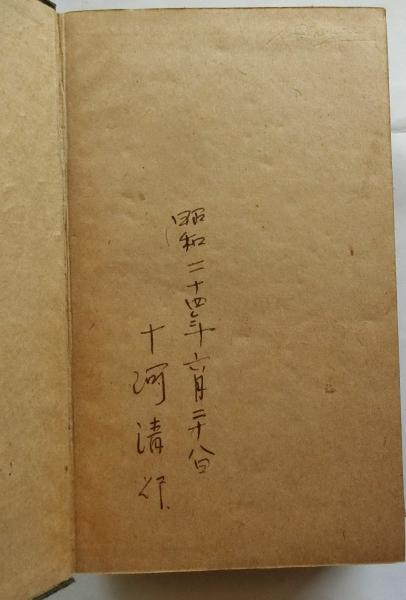 昭和二十四年六月二十八日
十河清